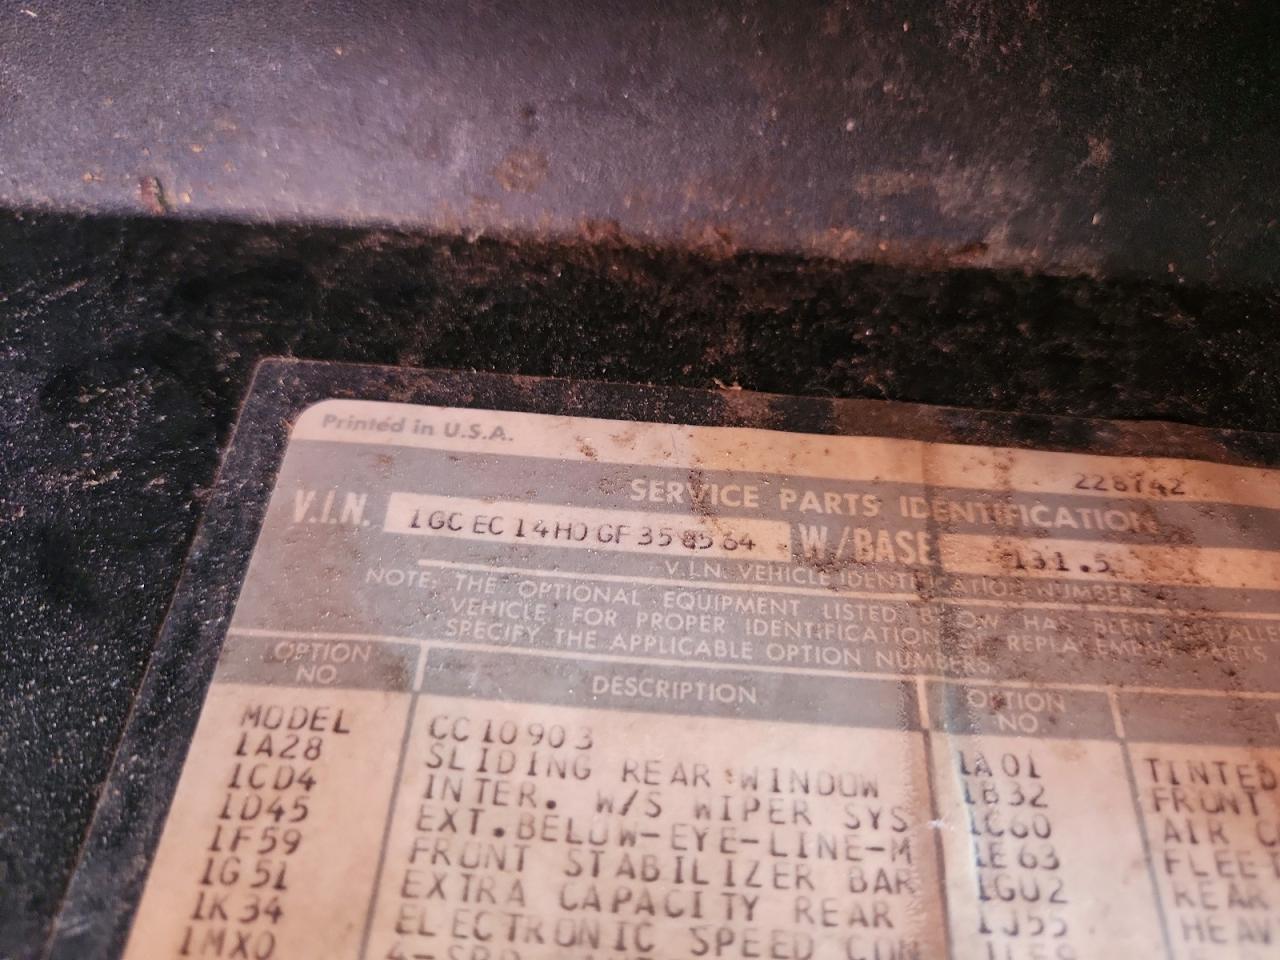 Printed in U.S.A.
228742
SERVICE PARTS IDENTIFICATION
V.I.N. 1GCEC14H0GF358564 W/BASE 131.5
V.I.N. VEHICLE IDENTIFICATION NUMBER
NOTE: THE OPTIONAL EQUIPMENT LISTED BELOW HAS BEEN INSTALLE
VEHICLE FOR PROPER IDENTIFICATION OF REPLACEMENT PARTS
SPECIFY THE APPLICABLE OPTION NUMBERS.
OPTION NO. DESCRIPTION OPTION NO.
MODEL CC10903
1A28 SLIDING REAR WINDOW 1A01 TINTED
1CD4 INTER. W/S WIPER SYS 1B32 FRONT
1D45 EXT.BELOW-EYE-LINE-M 1C60 AIR C
1F59 FRONT STABILIZER BAR 1E63 FLEE
1G51 EXTRA CAPACITY REAR 1GU2 REAR
1K34 ELECTRONIC SPEED CON 1J55 HEAV
1MX0